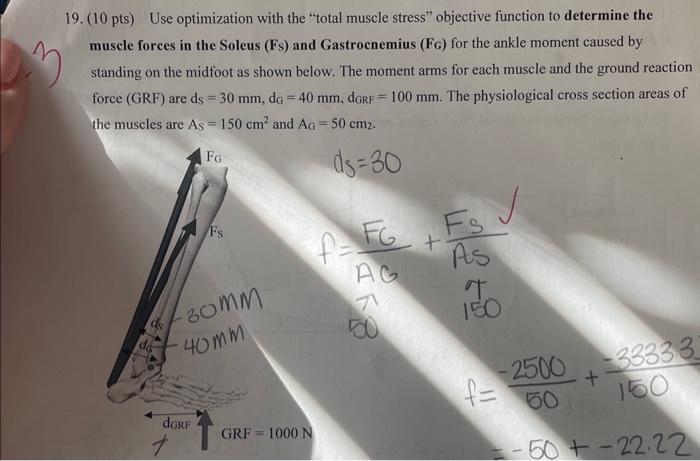 19. (10 pts) Use optimization with the “total muscle stress” objective function to determine the
muscle forces in the Soleus (FS) and Gastrocnemius (FG) for the ankle moment caused by
standing on the midfoot as shown below. The moment arms for each muscle and the ground reaction
force (GRF) are dS = 30 mm, dG = 40 mm, dGRF = 100 mm. The physiological cross section areas of
the muscles are AS = 150 cm² and AG = 50 cm2.
-3
FG
ds=30
FS
f= FG/AG + FS/AS ✓
50 150
dS -30MM
dG -40MM
f= -2500/50 + -3333.3/150
= -50 + -22.22
dGRF
+
GRF = 1000 N